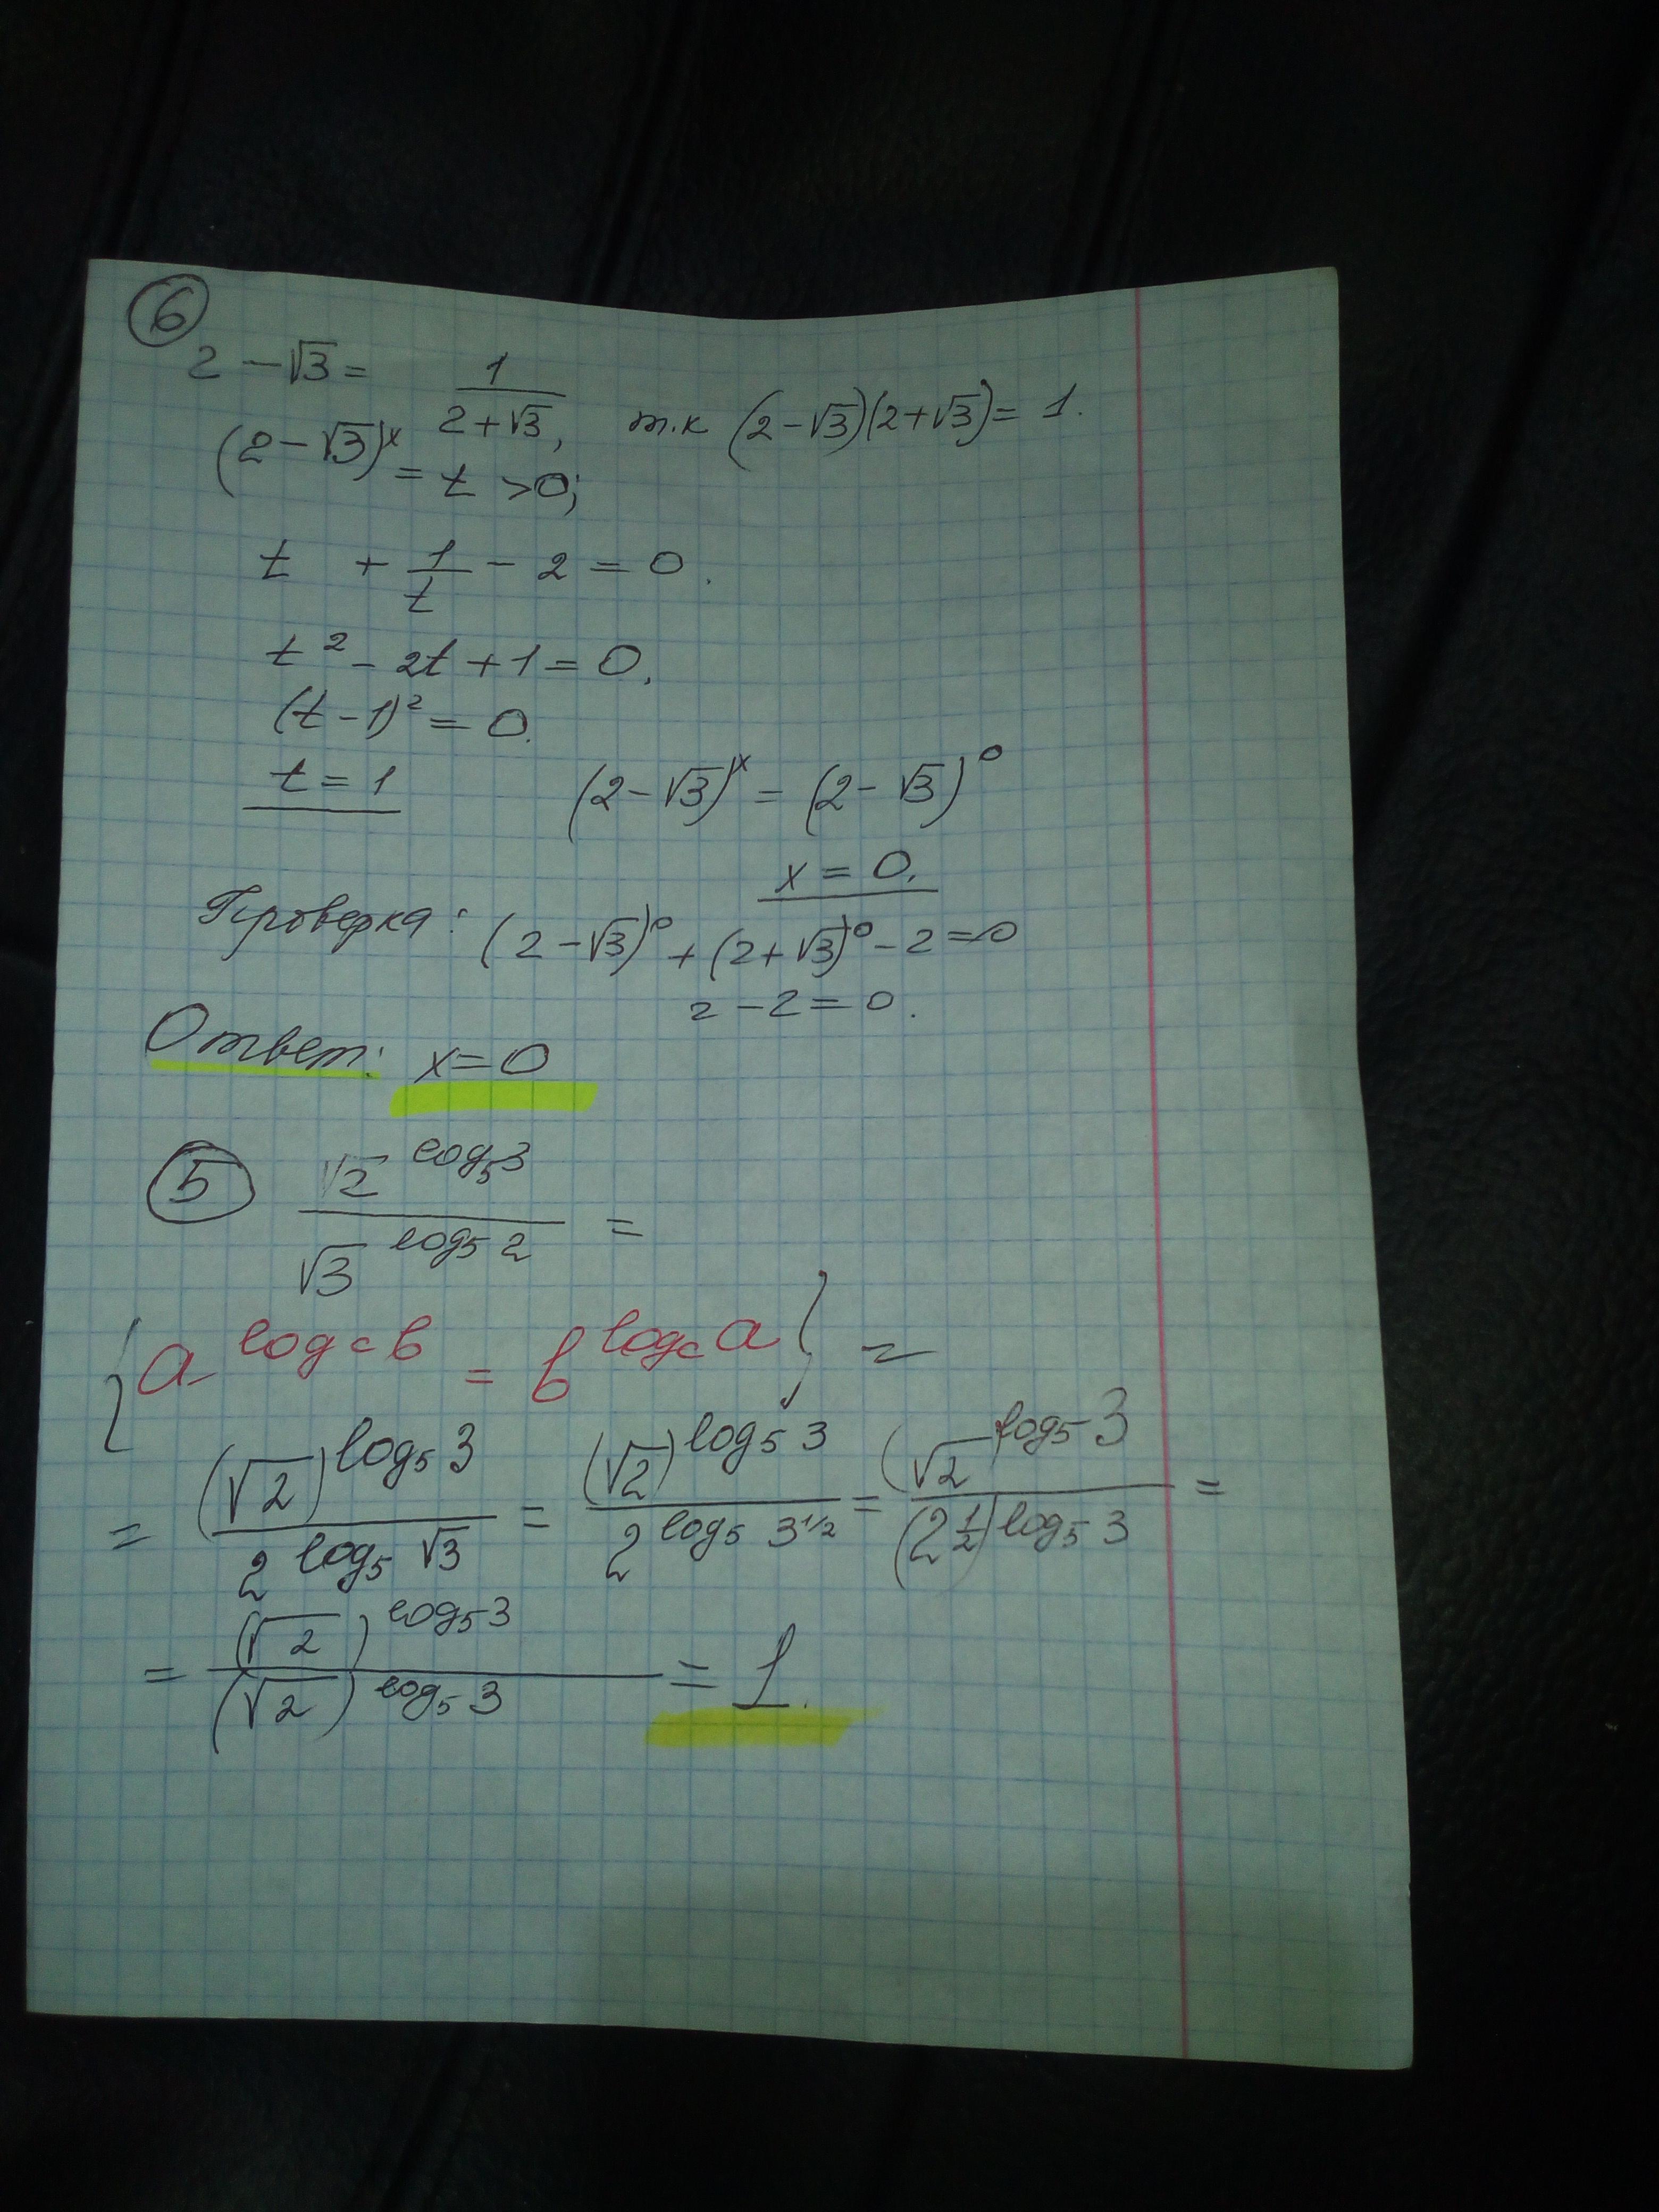 6
2 - √3 = 1/(2 + √3), т.к (2 - √3)(2 + √3) = 1.
(2 - √3)^x = t > 0;
t + 1/t - 2 = 0.
t² - 2t + 1 = 0.
(t - 1)² = 0.
t = 1 (2 - √3)^x = (2 - √3)^0
x = 0.
Проверка: (2 - √3)^0 + (2 + √3)^0 - 2 = 0
2 - 2 = 0.
Ответ: x = 0
5 √2^(log₅3) / √3^(log₅2) =
{a^(log_c b) = b^(log_c a)} =
= (√2)^(log₅3) / 2^(log₅√3) = (√2)^(log₅3) / 2^(log₅3^(1/2)) = (√2^(log₅3) / (2^(1/2))^(log₅3) =
= (√2)^(log₅3) / (√2)^(log₅3) = 1.